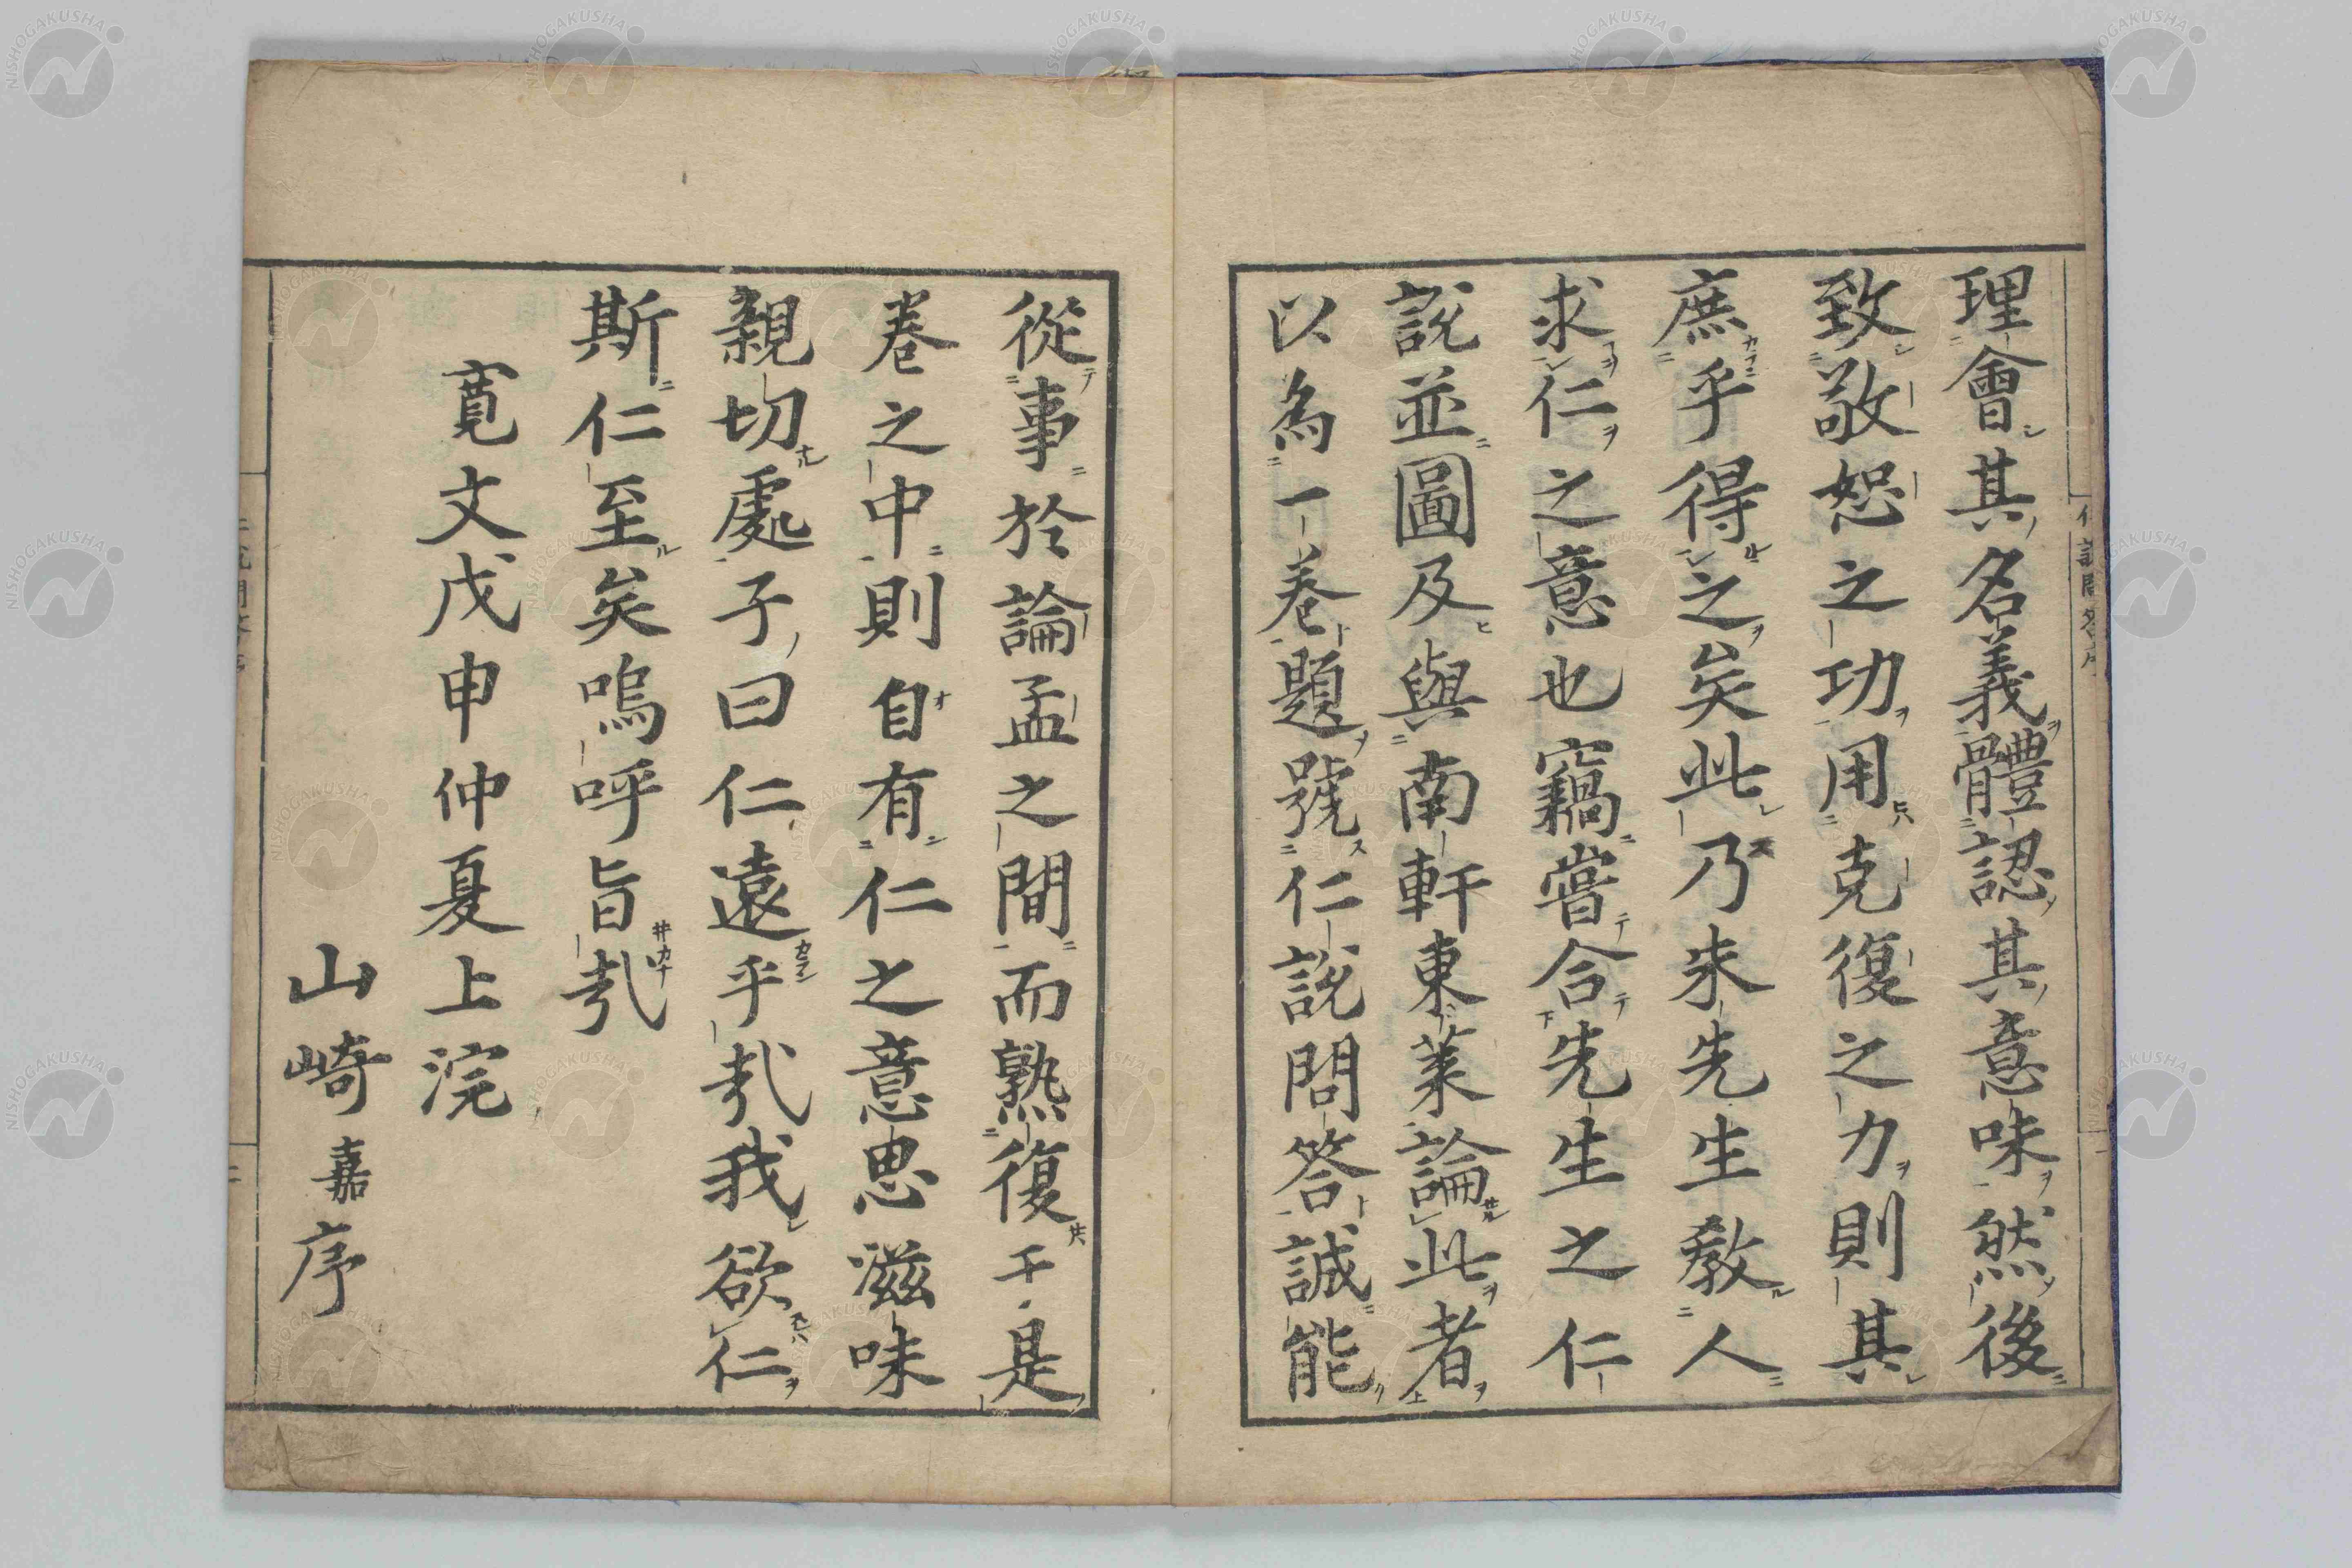 理會其名義體認其意味然後
致敬恕之功用克復之力則其
庶乎得之矣此乃朱先生教人
求仁之意也竊嘗合先生之仁
說並圖及與南軒東萊論此者
以為一卷題號仁說問答誠能
從事於論孟之間而熟復于是
卷之中則自有仁之意思滋味
親切處子曰仁遠乎哉我欲仁
斯仁至矣嗚呼旨哉
寬文戊申仲夏上浣
山崎嘉序
NISHOGAKUSHA